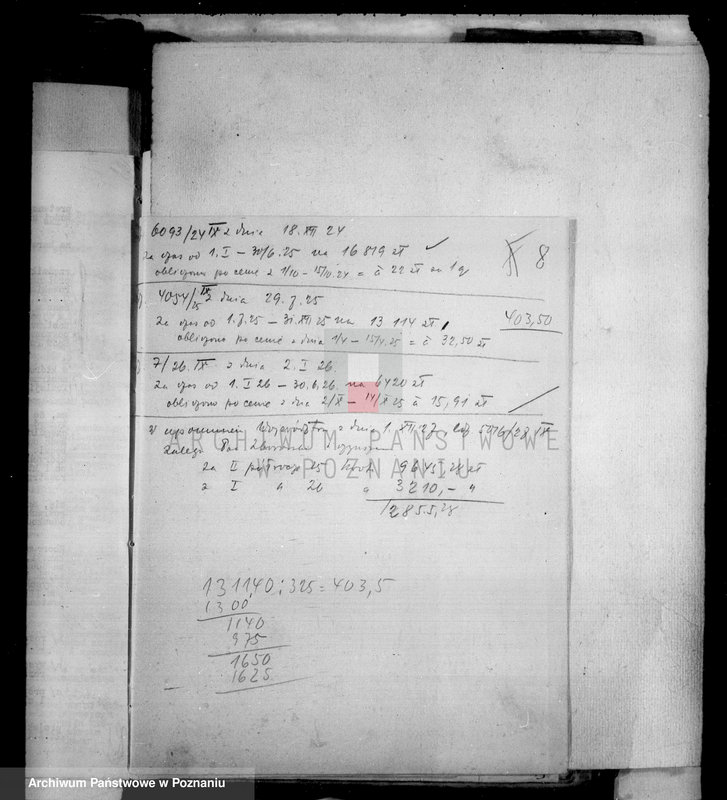 6093/24 IX z dnia 18. XII 24
za czas od 1. I – 30/6.25 na 16 819 zł ✓
obliczono po cenie z 1/10 – 15/10.24 = à 22 zł za 1 q
8
4054/25 IX z dnia 29. 7. 25
za czas od 1. 7. 25 – 31. XII 25 na 13 114 zł
403,50
obliczono po cenie z dnia 1/4 – 15/4.25 = à 32,50 zł
7/26. IX z dnia 2. I 26
za czas od 1. I 26 – 30. 6. 26. na 6420 zł
obliczono po cenie z dnia 2/X – 14/X 25 à 15,91 zł
z dnia 1. XII 27 5076/27 IX
ARCHIWUM PAŃSTWOWE
W POZNANIU
za II półrocze 25 9645,28 zł
z I " 26 " 3210,– "
12855,28
131140 : 325 = 403,5
1300
1140
975
1650
1625
Archiwum Państwowe w Poznaniu